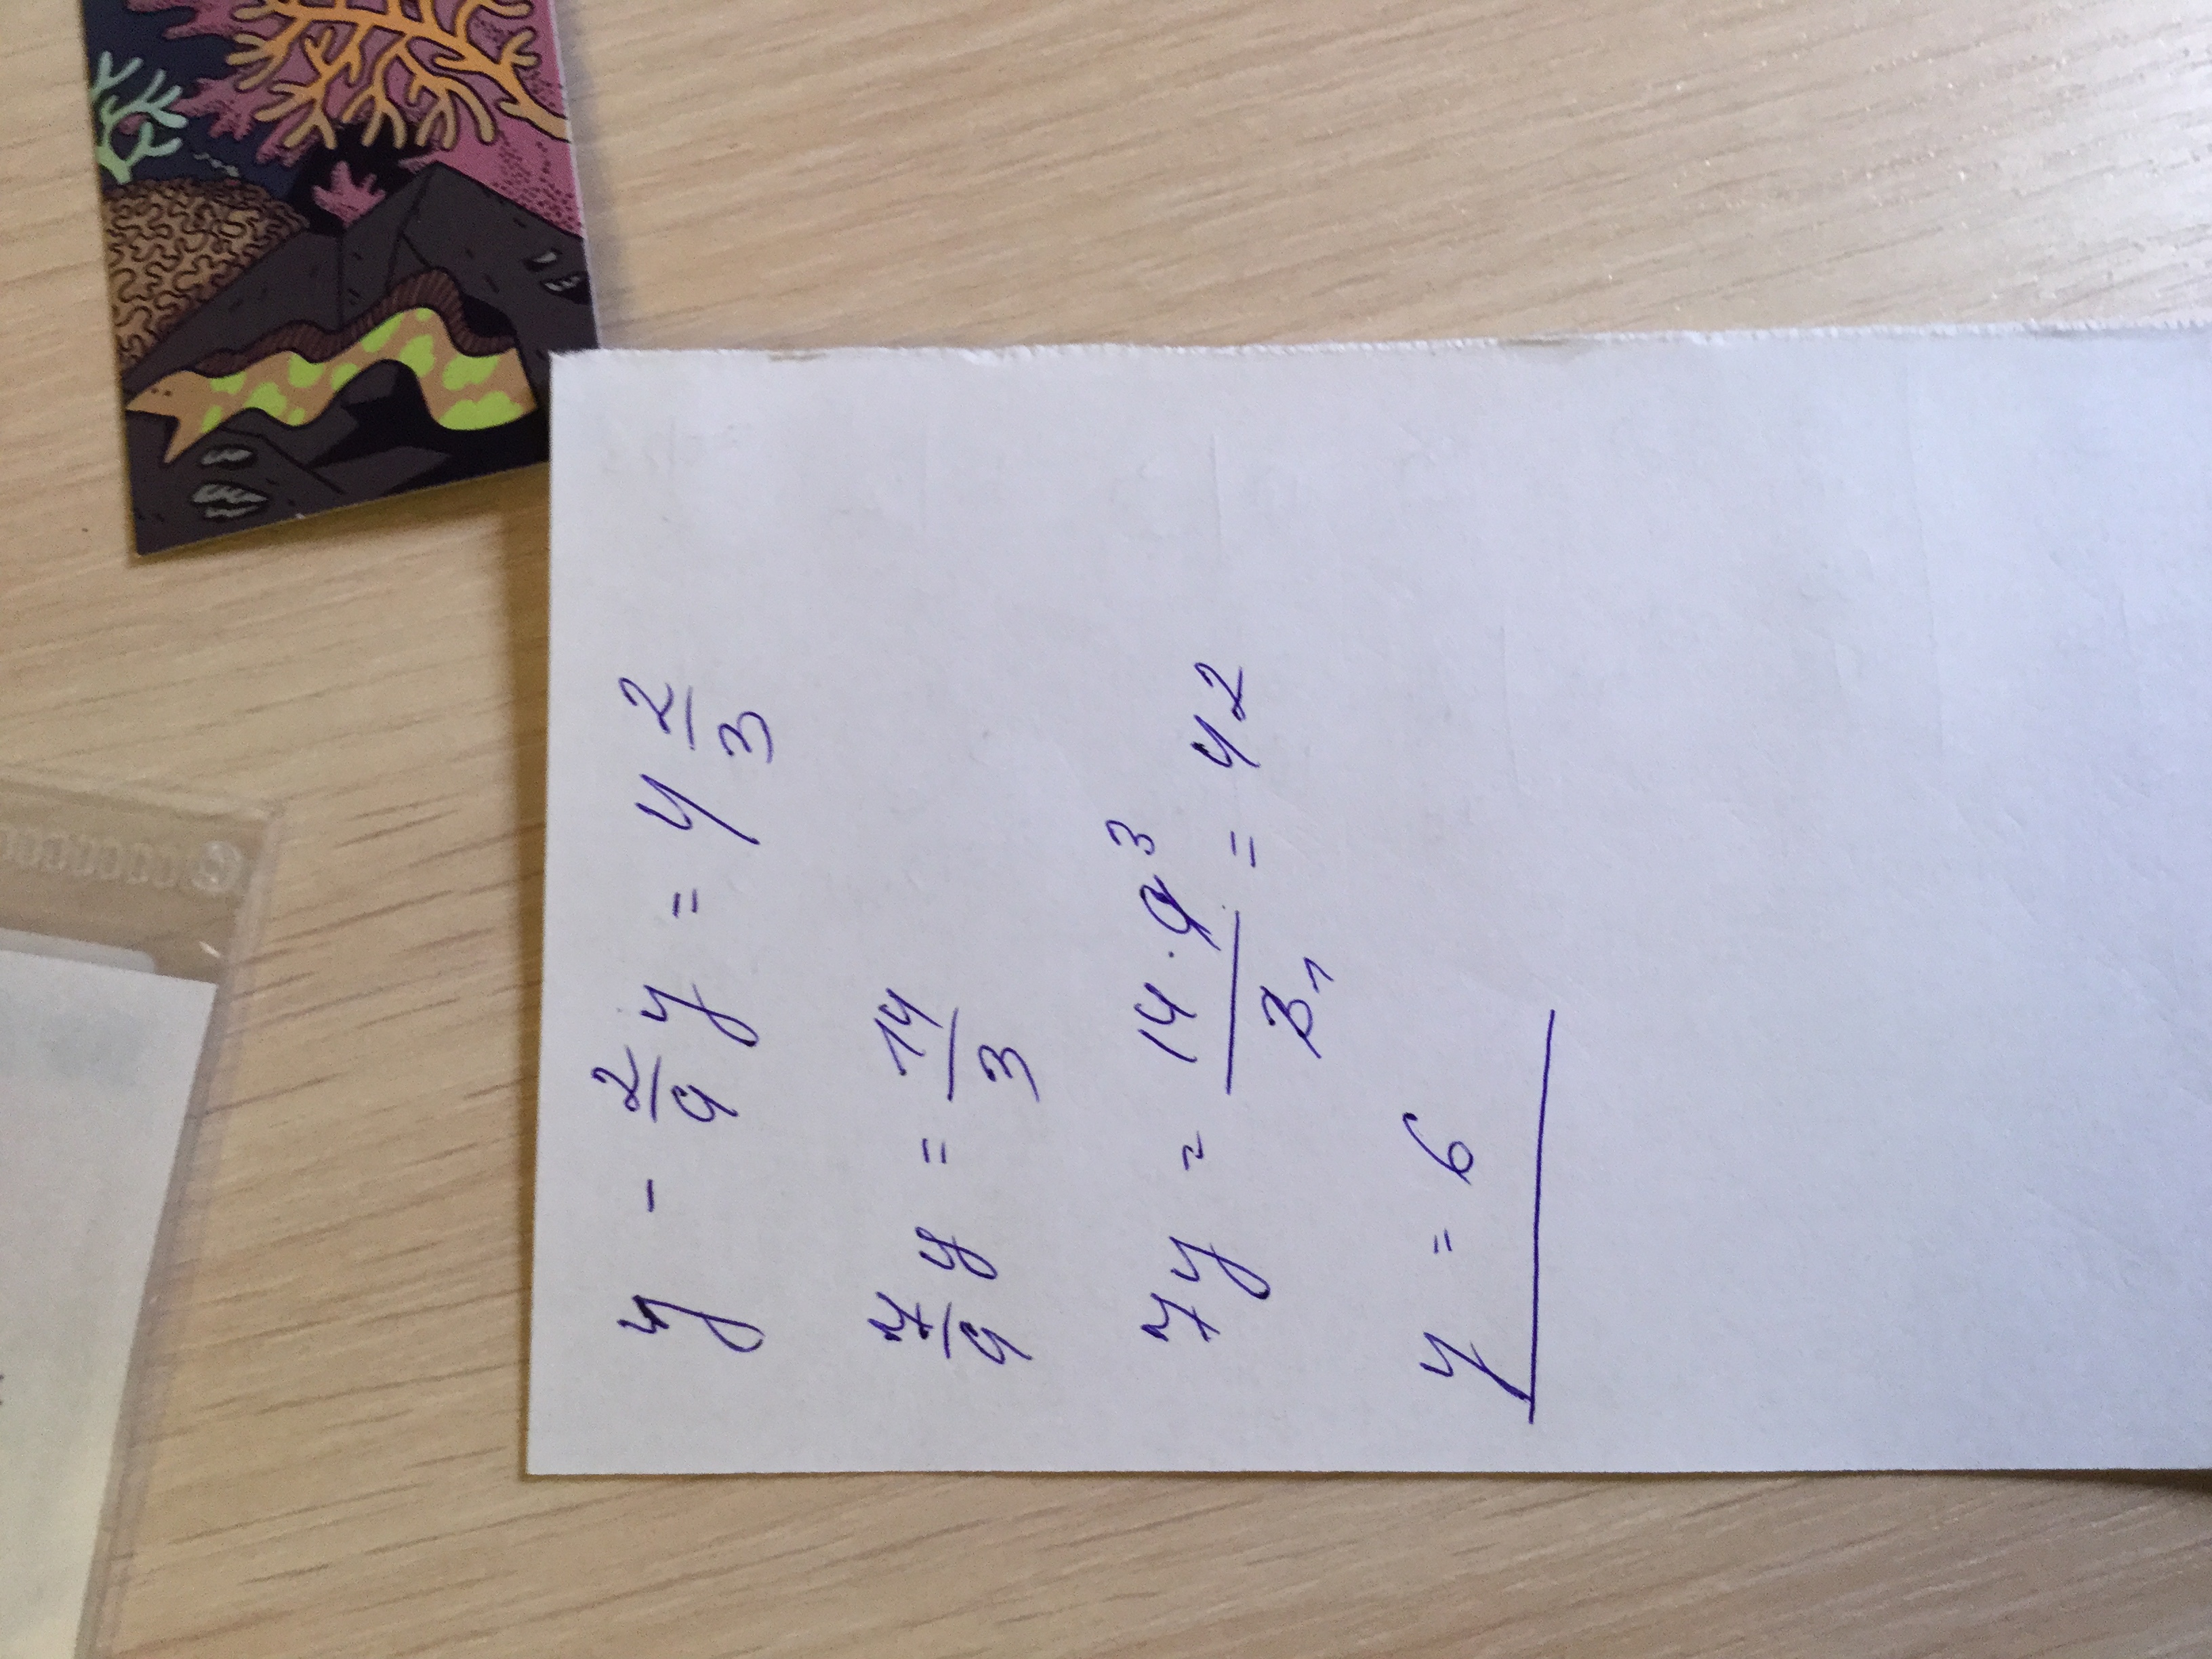 y - 2/9 y = 4 2/3
7/9 y = 14/3
7y = 14 · 9³ / 3₁ = 42
y = 6